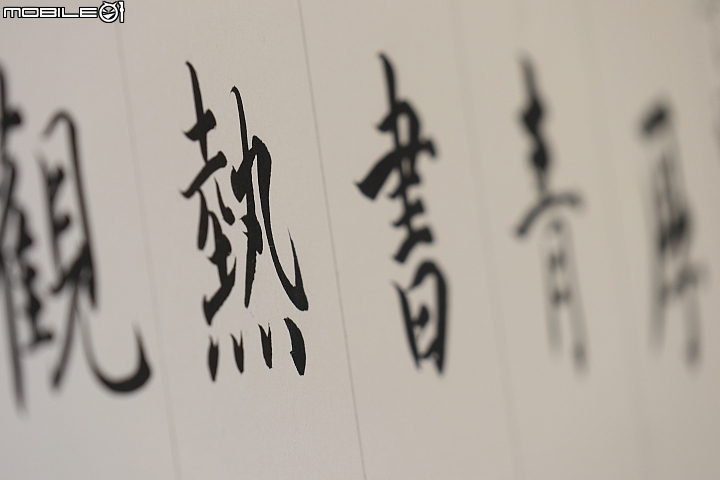 MOBILE01
觀
熱
書
青
再